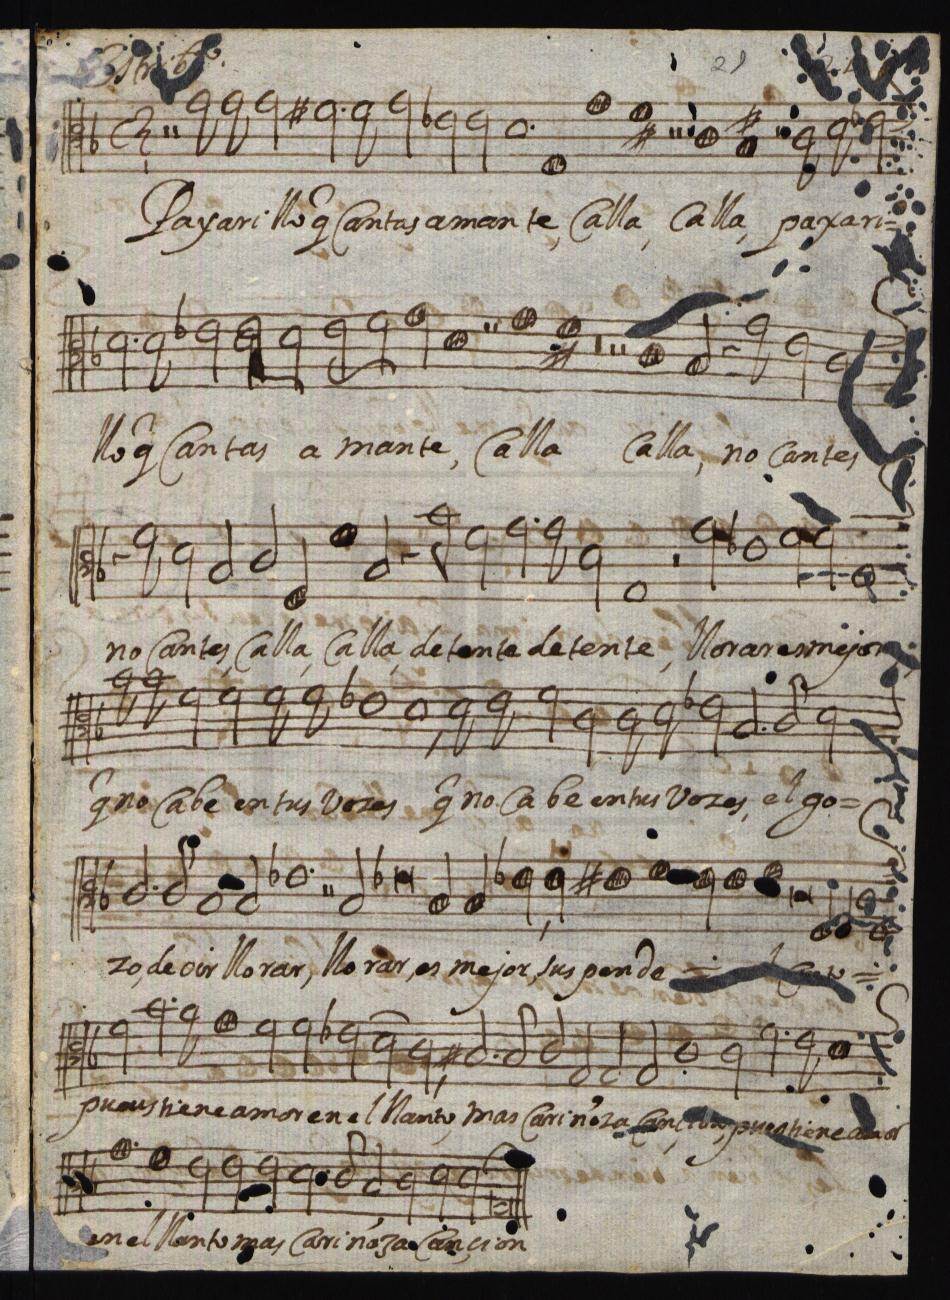 Estribo.
21
Paxarillo q̃ Cantas amante, Calla, Calla, paxari=
llo q̃ Cantas a mante, Calla Calla, no Cantes
no Cantes, Calla, Calla, detente detente, llorar es mejor
q̃ no Cabe en tus Vozes q̃ no Cabe en tus Vozes, el go=
zo, de oir llorar, llorar, es mejor, suspende
pues tiene amor en el llanto, mas Cariñoza Cançion, pues tiene amor
en el llanto mas Cariñoza Cançion